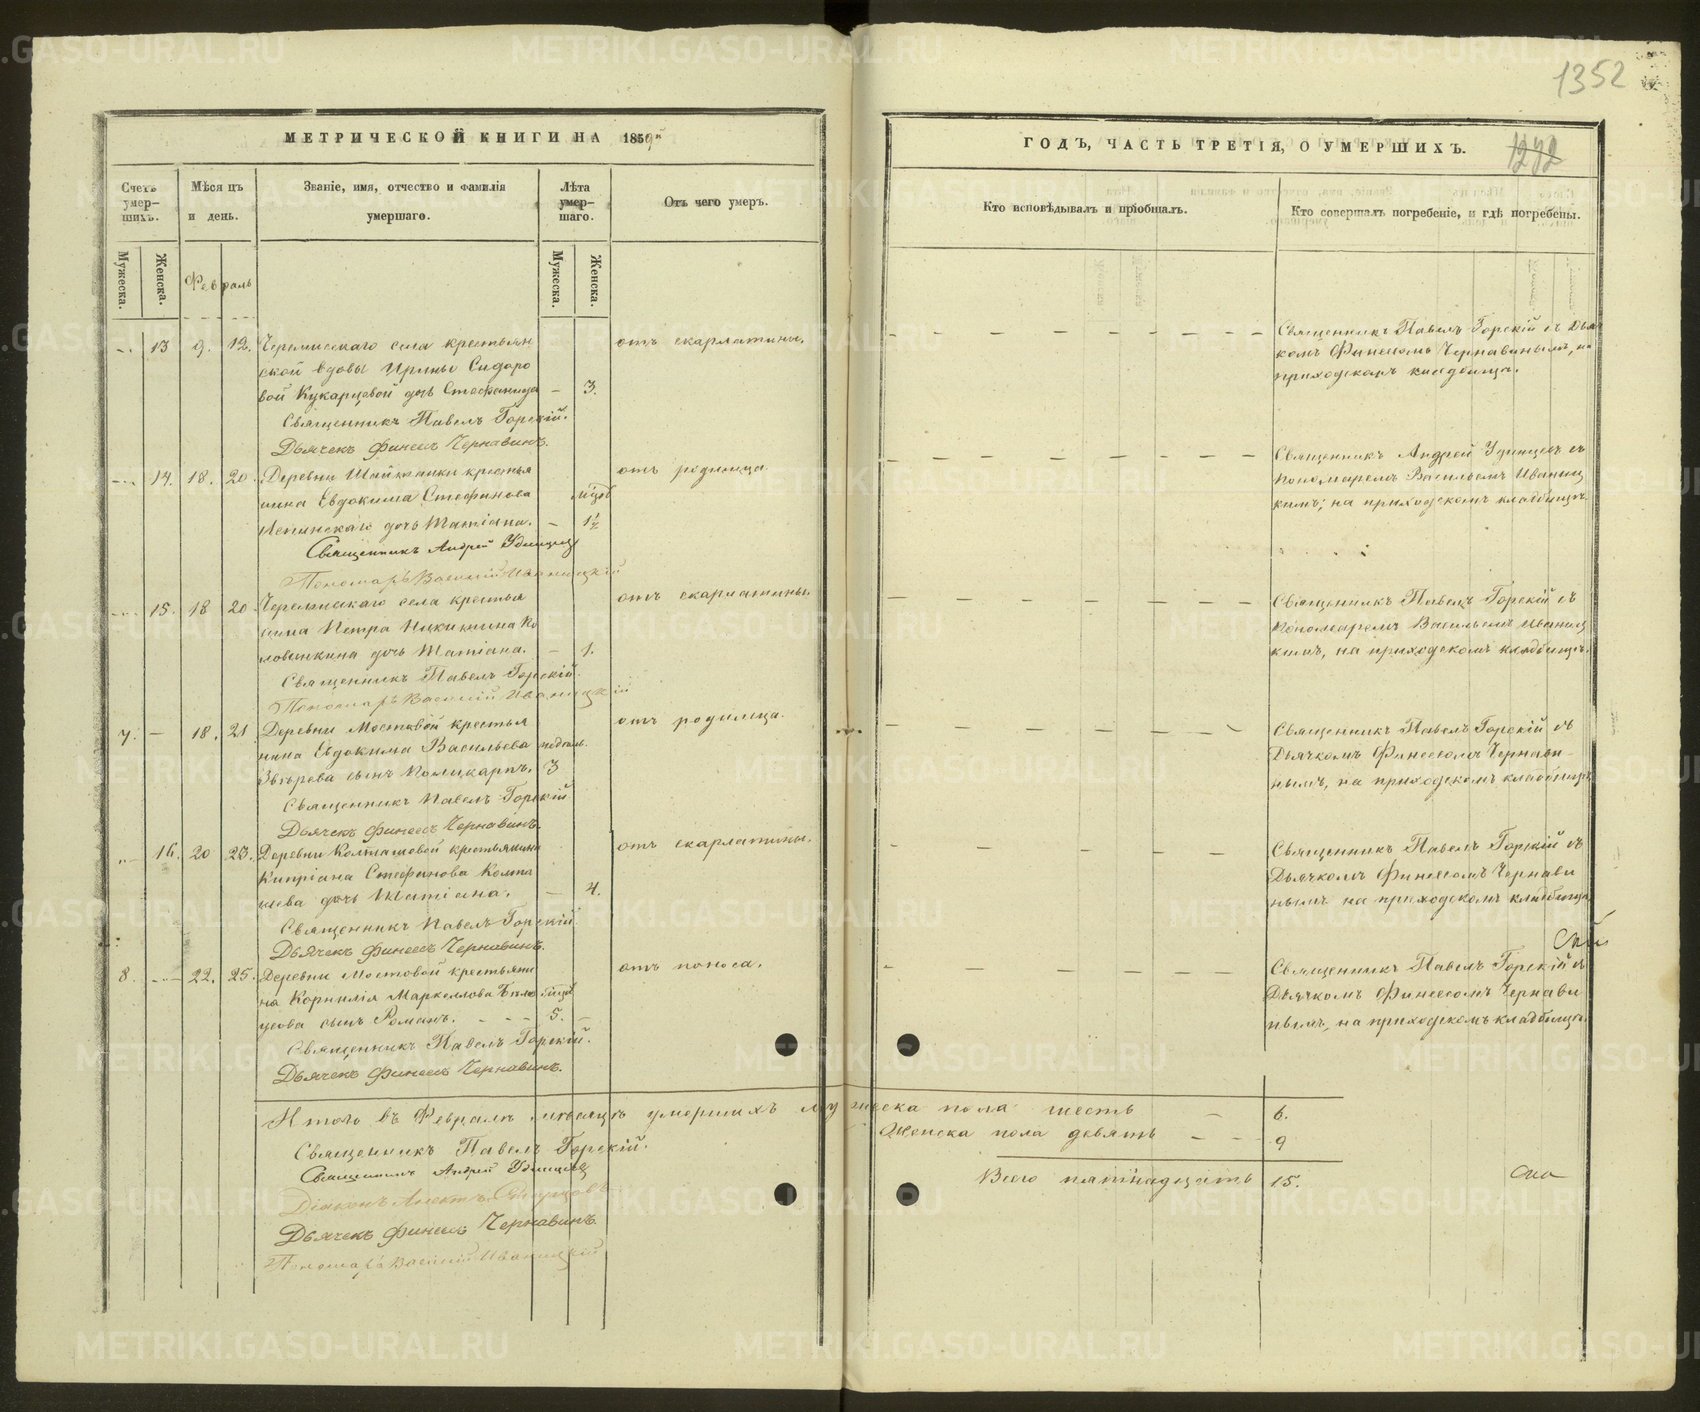 1352
МЕТРИЧЕСКОЙ КНИГИ НА 1859й
ГОДЪ, ЧАСТЬ ТРЕТІЯ, О УМЕРШИХЪ.
Счетъ умер-шихъ.
Мѣсяцъ и день.
Званіе, имя, отчество и фамилія умершаго.
Лѣта умер-шаго.
Отъ чего умеръ.
Кто исповѣдывалъ и пріобщалъ.
Кто совершалъ погребеніе, и гдѣ погребены.
Мужеска. Женска.
Февраль
Мужеска. Женска.
13 9. 12. Черемисскаго села крестьян
ской вдовы Ирины Сидоро
вой Кукарцевой дочь Стефанида – 3.
отъ скарлатины.
Священникъ Павелъ Горскій.
Дьячекъ Финеесъ Чернавинъ.
Священникъ Павелъ Горскій съ Дья
комъ Финеесомъ Чернавинымъ, на
приходскомъ кладбищѣ.
14. 18. 20. Деревни Шайтанки крестья
нина Евдокима Стефанова мѣсяц
дочь Татіана. – 1½
отъ родимца
Священникъ Андрей Удинцевъ
Пономарь Василій Иваницкій
Священникъ Андрей Удинцевъ съ
Пономаремъ Васильемъ Иваниц
кимъ; на приходскомъ кладбищѣ
15. 18 20 Черемисскаго села крестья
нина Петра Никитина Ко
ловшкина дочь Татіана. – 1.
отъ скарлатины.
Священникъ Павелъ Горскій.
Пономарь Василій Иваницкій
Священникъ Павелъ Горскій съ
Пономаремъ Васильемъ Иваниц
кимъ, на приходскомъ кладбищѣ.
7. – 18. 21. Деревни Мостовой крестья
нина Евдокима Васильева недѣль.
Звѣрева сынъ Поликарпъ. 3
отъ родимца.
Священникъ Павелъ Горскій
Дьячекъ Финеесъ Чернавинъ.
Священникъ Павелъ Горскій съ
Дьячкомъ Финеесомъ Чернави-
нымъ, на приходскомъ кладбищѣ
16. 20 23. Деревни Колташовой крестьянина
Кипріана Стефанова Колта
шева дочь Татіана. – 4.
отъ скарлатины.
Священникъ Павелъ Горскій.
Дьячекъ Финеесъ Чернавинъ.
Священникъ Павелъ Горскій съ
Дьячкомъ Финеесомъ Чернави
нымъ на приходскомъ кладбищѣ
8. 22. 25. Деревни Мостовой крестьяни
на Корнилія Маркеллова Бѣло
усова сынъ Романъ. – – – 5. –
отъ поноса.
Священникъ Павелъ Горскій.
Дьячекъ Финеесъ Чернавинъ.
Священникъ Павелъ Горскій съ
Дьячкомъ Финеесомъ Чернави
нымъ, на приходскомъ кладбищѣ.
Итого въ Февралѣ мѣсяцѣ умершихъ мужеска пола шесть – 6.
Женска пола девять – – 9
Всего пятнадцать 15.
Священникъ Павелъ Горскій.
Священникъ Андрей Удинцевъ
Дьячекъ Финеесъ Чернавинъ.
Пономарь Василій Иваницкій
METRIKI.GASO-URAL.RU